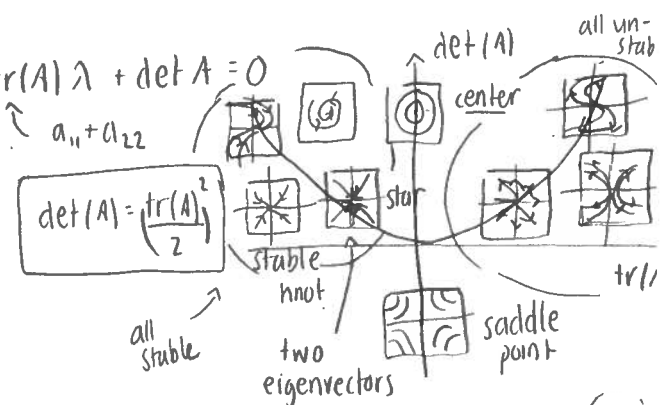 r(A) λ + det A = 0
a₁₁ + a₂₂
det(A) = (tr(A)/2)²
det(A)
center
all un-
stab
star
stable
knot
all
stable
two
eigenvectors
saddle
point
tr(